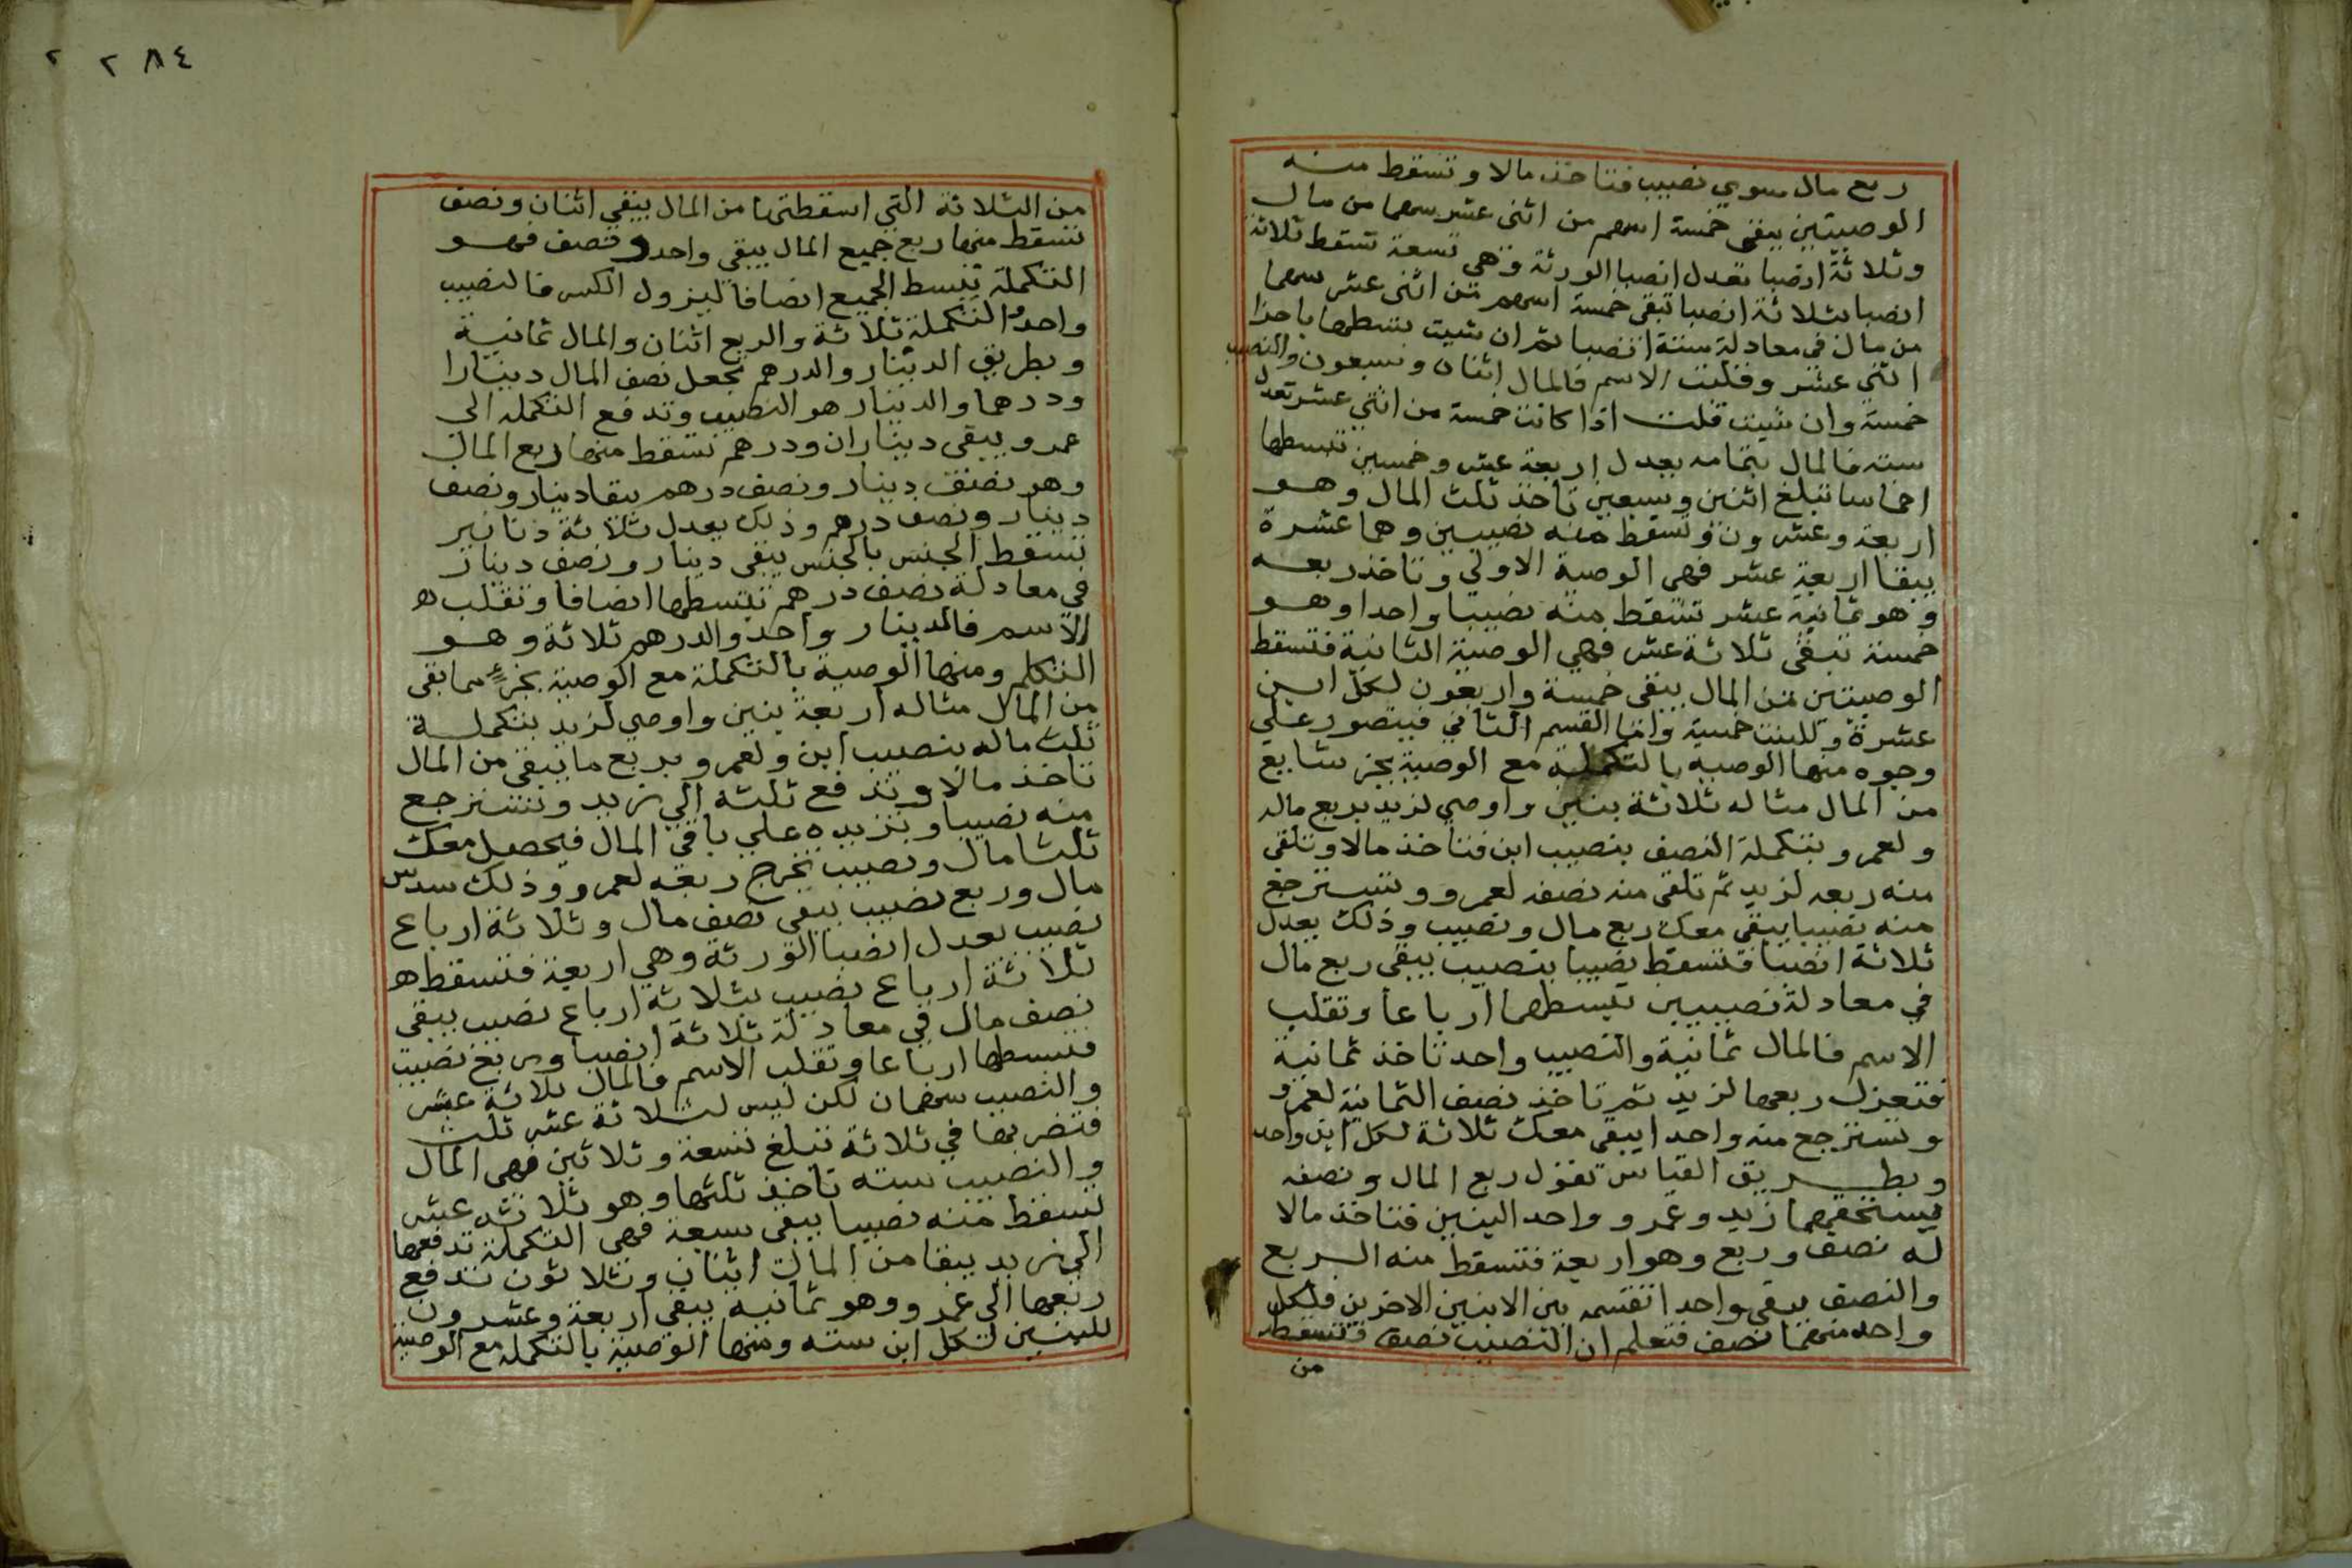 ربع مال سوي نصيب فتاخذ مالا وتسقط منه
الوصيتين يبقى خمسة اسهم من اثنى عشر سهما من مال
وثلاثة انصبا تعدل انصبا الورثة وهي تسعة تسقط ثلاثة
انصبا بثلاثة انصبا تبقى خمسة اسهم من اثنى عشر سهما
من مال في معادلة ستة انصبا ثم ان شيت بسطهما باحزا
اثني عشر وقلبت الاسم فالمال اثنان وسبعون والنصيب
خمسة وان شيت قلت اذا كانت خمسة من اثني عشر تعدل
ستة فالمال بتمامه يعدل اربعة عشر وخمسين تبسطها
اخماسا تبلغ اثنين وسبعين تاخذ ثلث المال وهو
اربعة وعشرون وتسقط منه نصيبين وهما عشرة
يبقا اربعة عشر فهي الوصية الاولي وتاخذ ربعه
وهو ثمانية عشر تسقط منه نصيبا واحدا وهو
خمسة تبقى ثلاثة عشر فهي الوصية الثانية فتسقط
الوصيتين من المال يبقى خمسة واربعون لكل ابن
عشرة وللبنت خمسة واما القسم الثاني فيتصور علي
وجوه منها الوصيه بالتكملة مع الوصية بجز شايع
من المال مثاله ثلاثة بنين واوصي لزيد بربع ماله
ولعمرو بتكملة النصف بنصيب ابن فتاخذ مالا وتلقي
منه ربعه لزيد ثم تلقى منه نصفه لعمرو وتسترجع
منه نصيبا يبقى معك ربع مال ونصيب وذلك يعدل
ثلاثة انصبا فتسقط نصيبا بنصيب يبقى ربع مال
في معادلة نصيبين تبسطهما ارباعا وتقلب
الاسم فالمال ثمانية والنصيب واحد تاخذ ثمانية
فتعزل ربعها لزيد ثم تاخذ نصف الثمانية لعمرو
وتسترجع منه واحدا يبقى معك ثلاثة لكل ابن واحد
وبطريق القياس تقول ربع المال ونصفه
يستحقهما زيد وعمرو وواحد البنين فتاخذ مالا
له نصف وربع وهو اربعة فتسقط منه الربع
والنصف يبقى واحدا تقسمه بين الابنين الاخرين فلكل
واحد منهما نصف فتعلم ان النصيب نصف فتسقط
من
٢ ٢٨٤
من الثلاثة التي اسقطتها من المال يبقى اثنان ونصف
تسقط منها ربع جميع المال يبقي واحد ونصف فهو
التكملة تبسط الجميع انصافا ليزول الكسر فالنصيب
واحد والتكملة ثلاثة والربع اثنان والمال ثمانية
وبطريق الدينار والدرهم تجعل نصف المال دينارا
ودرهما والدينار هو النصيب وتدفع التكمله الي
عمرو يبقى ديناران ودرهم تسقط منها ربع المال
وهو نصف دينار ونصف درهم يبقا دينار ونصف
دينار ونصف درهم وذلك يعدل ثلاثة دنانير
تسقط الجنس بالجنس يبقى دينار ونصف دينار
في معادلة نصف درهم تبسطها انصافا وتقلب ه
الاسم فالدينار واحد والدرهم ثلاثة وهو
التكلم ومنها الوصية بالتكملة مع الوصية بجزء مما بقى
من المال مثاله اربعة بنين واوصي لزيد بتكملة
ثلث ماله بنصيب ابن ولعمرو بربع ما يبقى من المال
تاخذ مالا وتدفع ثلثه الي زيد وتسترجع
منه نصيبا وتزيده علي باقي المال فيحصل معك
ثلثا مال ونصيب تخرج ربعه لعمرو وذلك سدس
مال وربع نصيب يبقى نصف مال وثلاثة ارباع
نصيب يعدل انصبا الورثة وهي اربعة فتسقط ه
ثلاثة ارباع نصيب بثلاثة ارباع نصيب يبقى
نصف مال في معادلة ثلاثة انصبا وربع نصيب
فتبسطها ارباعا وتقلب الاسم فالمال ثلاثة عشر
والنصيب سهمان لكن ليس لثلاثة عشر ثلث
فتضربها في ثلاثة تبلغ تسعة وثلاثين فهي المال
والنصيب سته تاخذ ثلثها وهو ثلاثه عشر
تسقط منه نصيبا يبقى سبعة فهى التكملة تدفعها
الي زيد يبقا من المال اثنان وثلاثون تدفع
ربعها الي عمرو وهو ثمانيه يبقى اربعة وعشرون
للبنين لكل ابن سته ومنها الوصية بالتكمله مع الوصية